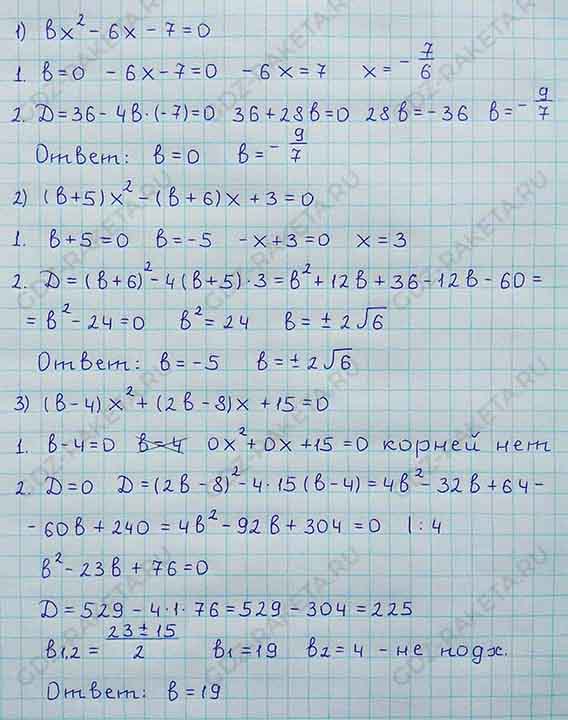 1) вx² - 6x - 7 = 0
1. в=0 -6x-7=0 -6x=7 x=-7/6
2. D=36-4в·(-7)=0 36+28в=0 28в=-36 в=-9/7
Ответ: в=0 в=-9/7
2) (в+5)x² - (в+6)x + 3 = 0
1. в+5=0 в=-5 -x+3=0 x=3
2. D=(в+6)²-4(в+5)·3=в²+12в+36-12в-60=
=в²-24=0 в²=24 в=±2√6
Ответ: в=-5 в=±2√6
3) (в-4)x²+(2в-8)x+15=0
1. в-4=0 в=4 0x²+0x+15=0 корней нет
2. D=0 D=(2в-8)²-4·15(в-4)=4в²-32в+64-
-60в+240=4в²-92в+304=0 |:4
в²-23в+76=0
D=529-4·1·76=529-304=225
в1,2=(23±15)/2 в1=19 в2=4 - не подх.
Ответ: в=19
GDZ-RAKETA.RU